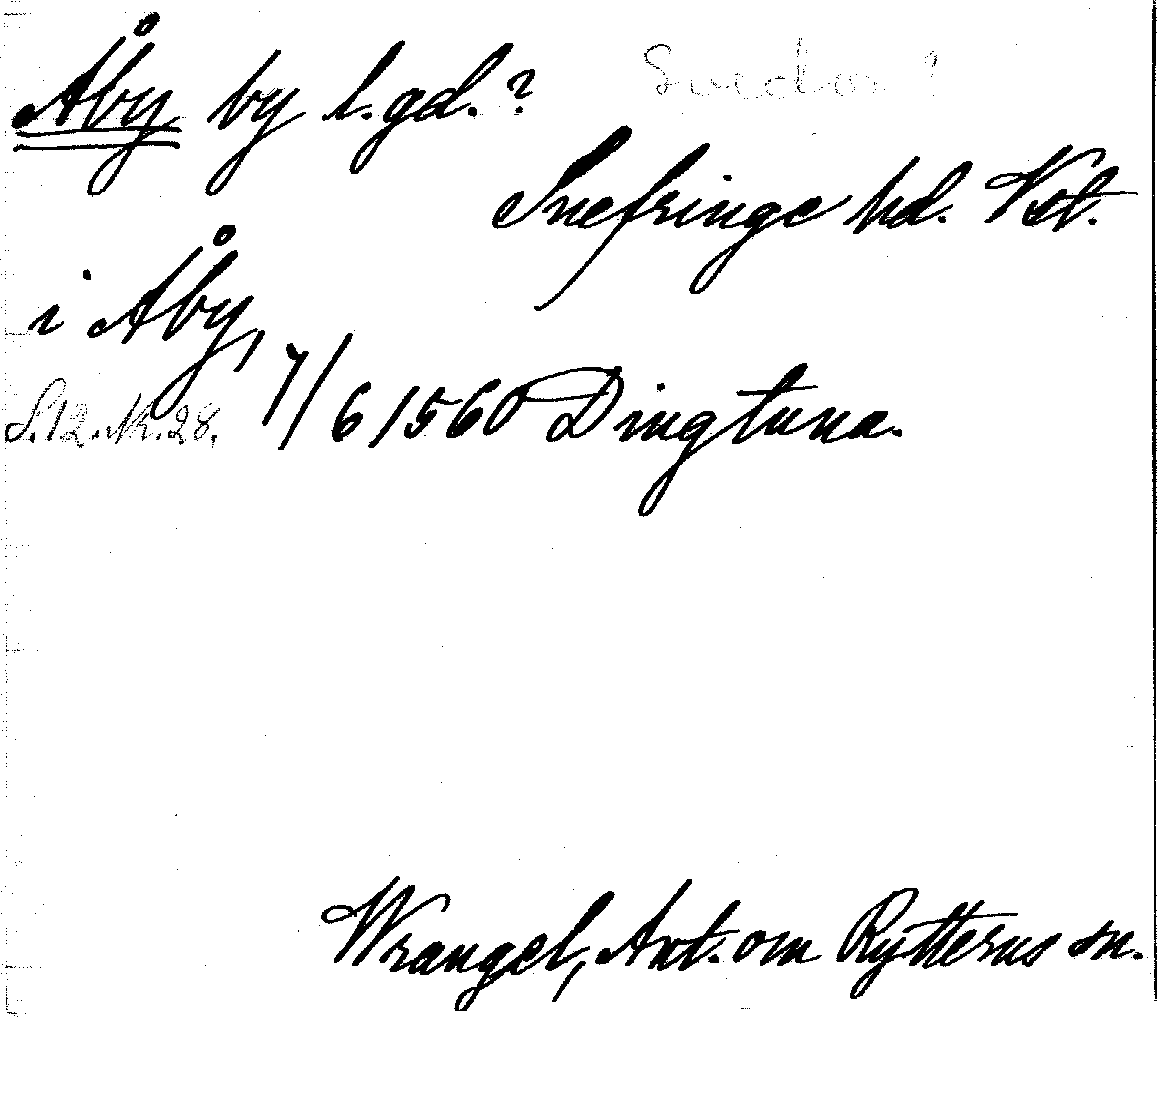 Åby by l. gd.?
Snefringe hd. Vstl.
i Åby, 7/6 1560 Dingtuna.
S. 12. Nr. 28.
Wrangel, Ant. om Rytterns sn.